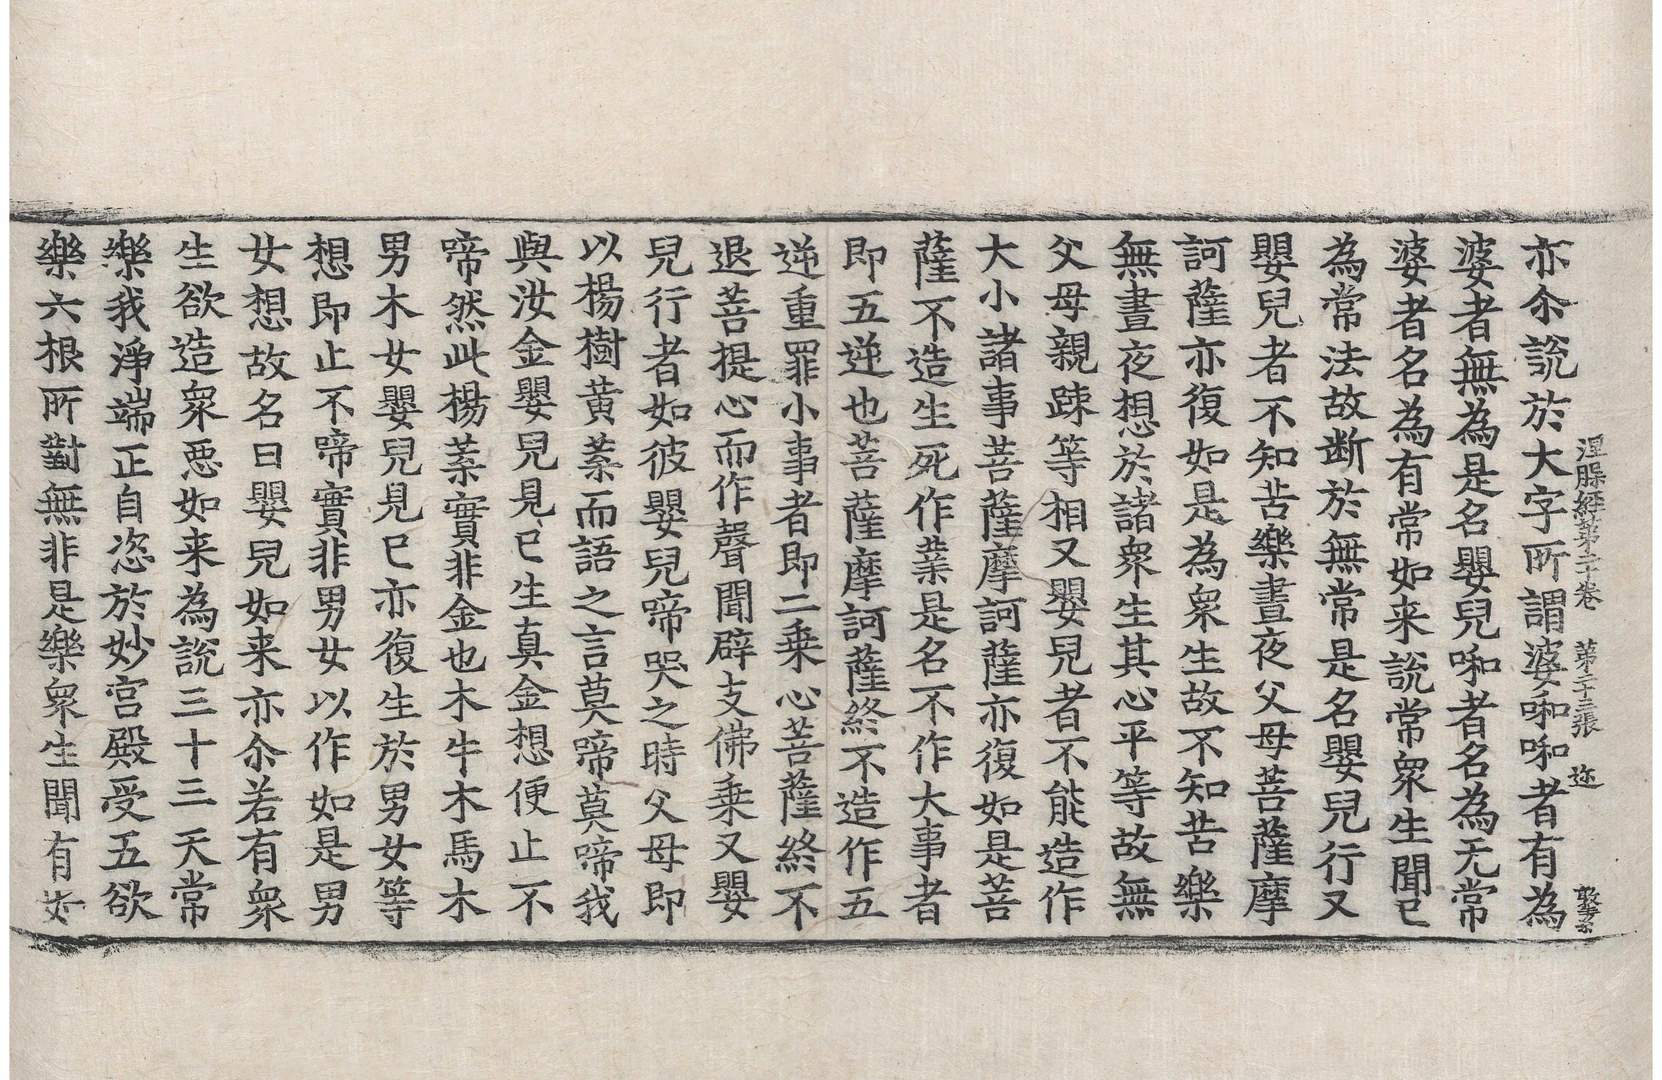 涅槃經第二十卷　第二十三張　迩
亦尒說於大字所謂婆啝啝者有為
婆者無為是名嬰兒啝者名為无常
婆者名為有常如来說常衆生聞已
為常法故断於無常是名嬰兒行又
嬰兒者不知苦樂晝夜父母菩薩摩
訶薩亦復如是為衆生故不知苦樂
無晝夜想於諸衆生其心平等故無
父母親踈等相又嬰兒者不能造作
大小諸事菩薩摩訶薩亦復如是菩
薩不造生死作業是名不作大事者
即五逆也菩薩摩訶薩終不造作五
逆重罪小事者即二乗心菩薩終不
退菩提心而作聲聞辟支佛乗又嬰
兒行者如彼嬰兒啼哭之時父母即
以楊樹黄葉而語之言莫啼莫啼我
與汝金嬰兒見已生真金想便止不
啼然此楊葉實非金也木牛木馬木
男木女嬰兒見已亦復生於男女等
想即止不啼實非男女以作如是男
女想故名曰嬰兒如来亦尒若有衆
生欲造衆惡如来為說三十三天常
樂我淨端正自恣於妙宫殿受五欲
樂六根所對無非是樂衆生聞有如